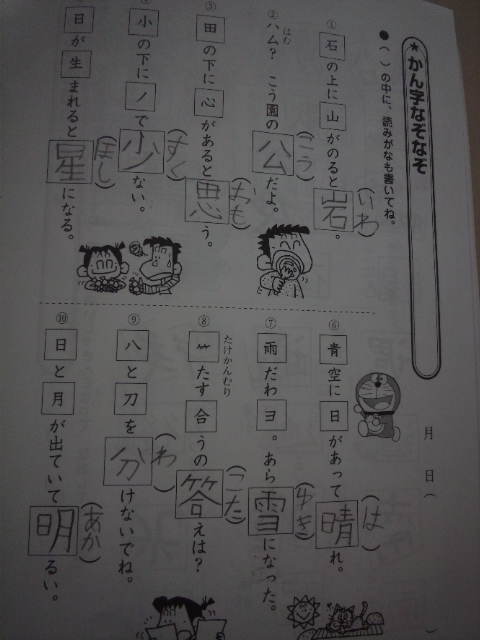 ★かん字なぞなぞ
月 日（ ）
●（ ）の中に、読みがなも書いてね。
① 石の上に山がのると岩（いわ）。
② ハム（はむ）？ こう園の公（こう）だよ。
③ 田の下に心があると思（おも）う。
④ 小の下にノで少（すく）ない。
⑤ 日が生まれると星（ほし）になる。
⑥ 青空に日があって晴（は）れ。
⑦ 雨だわヨ。あら雪（ゆき）になった。
⑧ ⺮（たけかんむり）たす合うの答（こた）えは？
⑨ 八と刀を分（わ）けないでね。
⑩ 日と月が出ていて明（あか）るい。